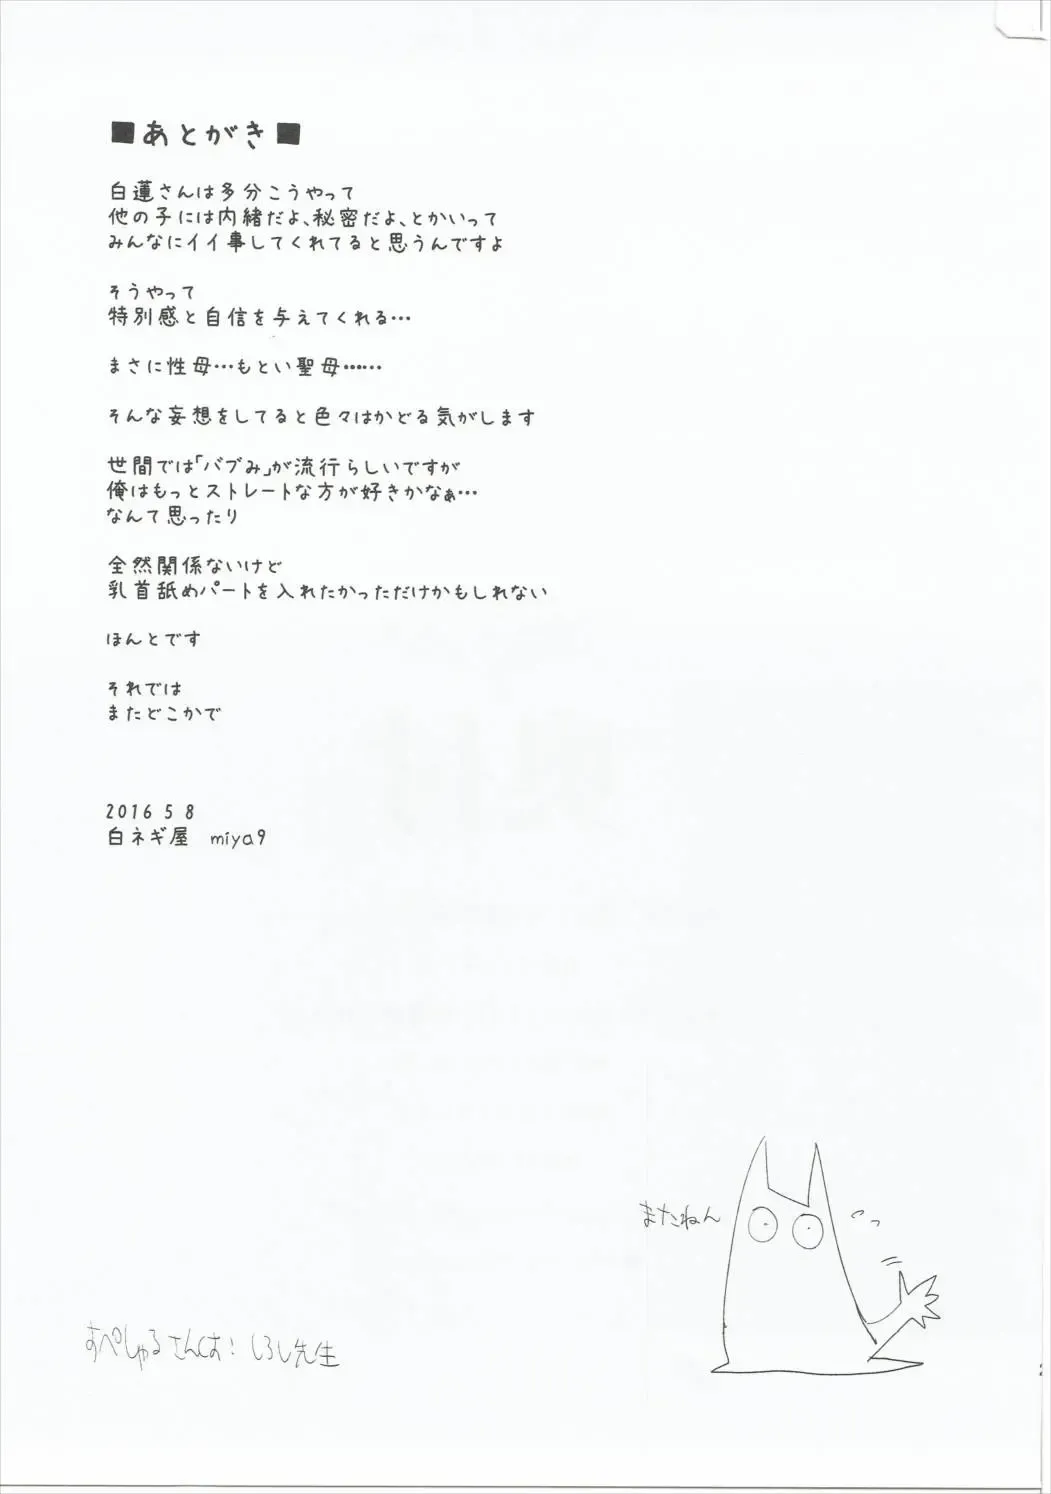 ■あとがき■
白蓮さんは多分こうやって
他の子には内緒だよ、秘密だよ、とかいって
みんなにイイ事してくれてると思うんですよ
そうやって
特別感と自信を与えてくれる…
まさに性母…もとい聖母……
そんな妄想をしてると色々はかどる気がします
世間では「バブみ」が流行らしいですが
俺はもっとストレートな方が好きかなぁ…
なんて思ったり
全然関係ないけど
乳首舐めパートを入れたかっただけかもしれない
ほんとです
それでは
またどこかで
2016 5 8
白ネギ屋 miya9
またねん
すぺしゃるさんくす! しろし先生